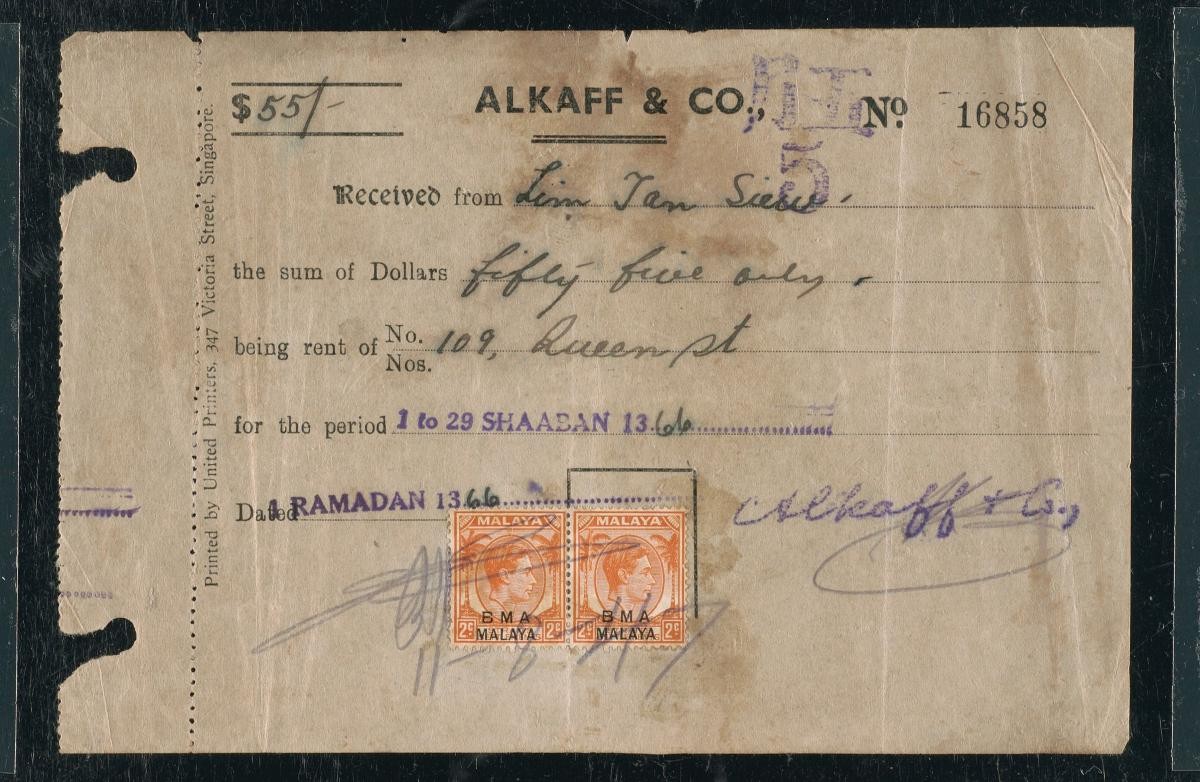 $ 55/-
ALKAFF & CO.,
Nº 16858
5
Received from Lim Tan Siew.
the sum of Dollars fifty five only.
being rent of No. Nos. 109, Queen St
for the period 1 to 29 SHAABAN 1366
Dated 1 RAMADAN 1366
Alkaff & Co.,
MALAYA MALAYA
BMA BMA
MALAYA MALAYA
2c 2c 2c 2c
11-8-47
Printed by United Printers, 347 Victoria Street, Singapore.